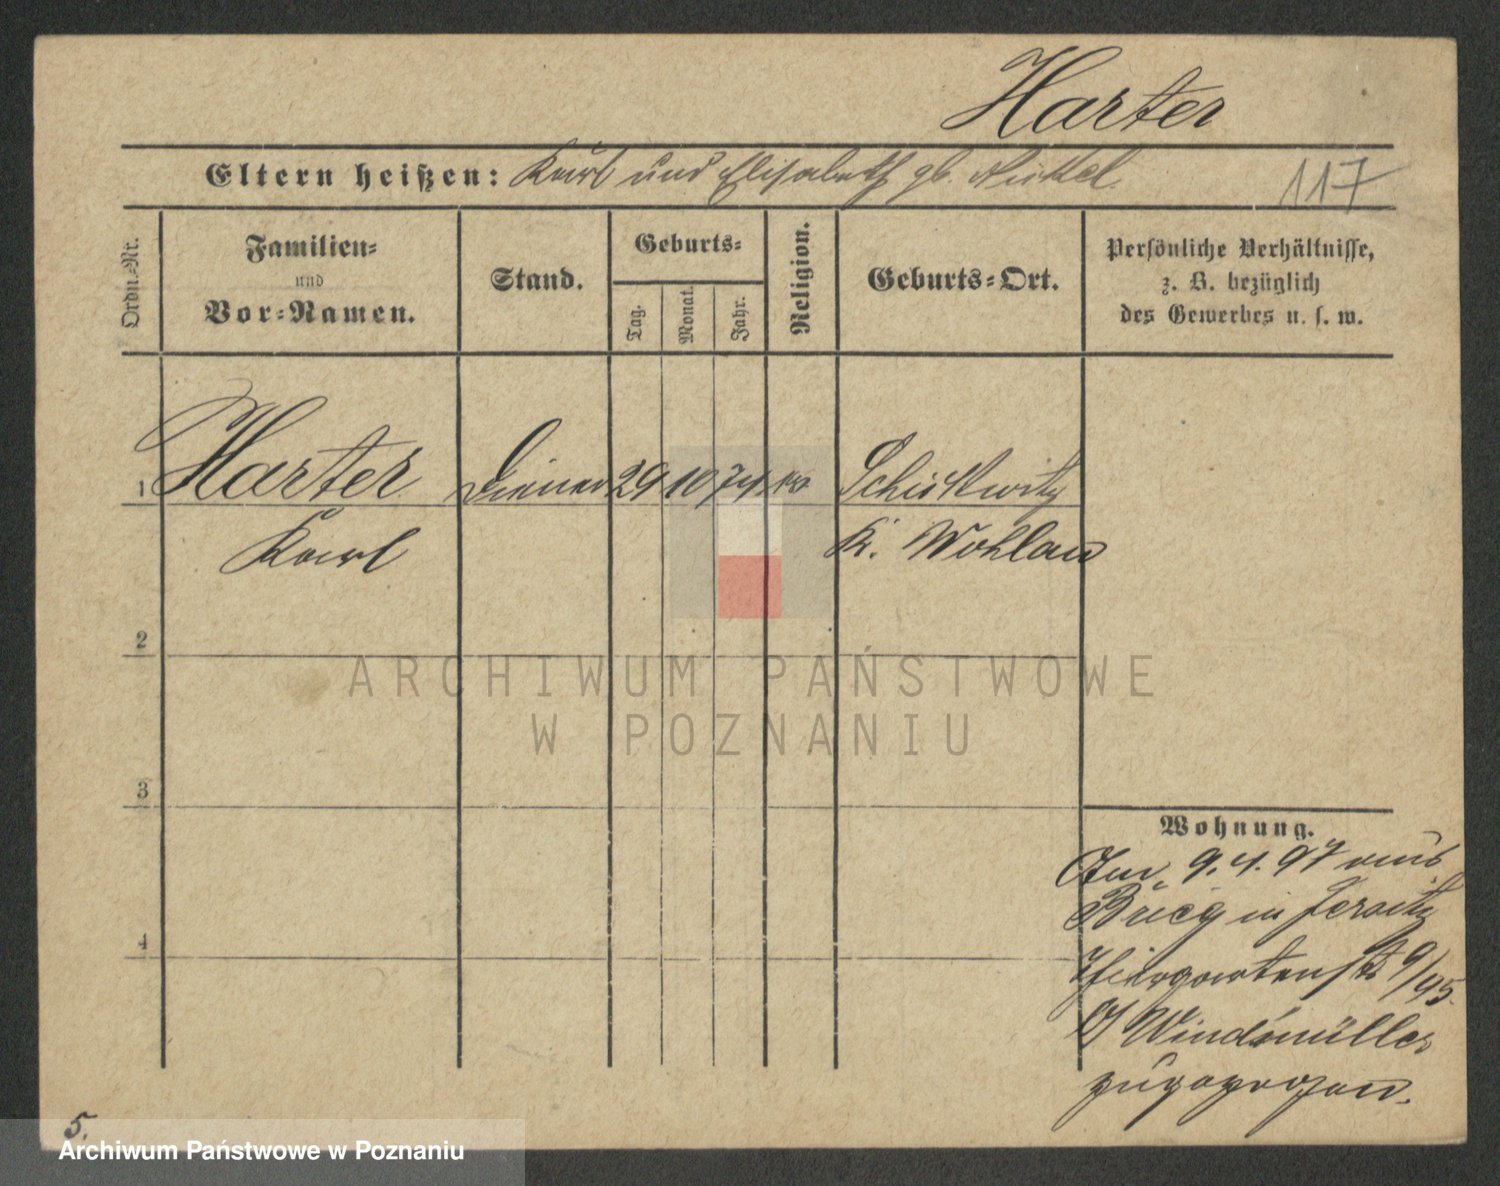 Harter
Eltern heißen: Karl und Elisabeth gb. Nickel
117
Ordn.-Nr.
Familien- und Vor-Namen.
Stand.
Geburts-
Tag.
Monat.
Jahr.
Religion.
Geburts-Ort.
Persönliche Verhältnisse,
z. B. bezüglich
des Gewerbes u. s. w.
1 Harter Diener 29 10 74
Karl K. Wohlau
2
3
4
Wohnung.
9.4.97 aus
Brieg in Jersitz
Thiergartenstr 9/95
b/ Windmüller
zugezogen.
5.
ARCHIWUM PAŃSTWOWE
W POZNANIU
Archiwum Państwowe w Poznaniu